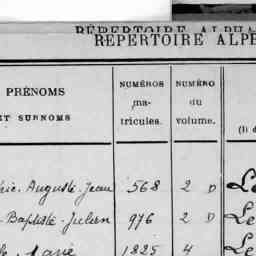 RÉPERTOIRE ALPHA
RÉPERTOIRE ALPH
PRÉNOMS
ET SURNOMS
NUMÉROS
ma-
tricules.
NUMÉRO
du
volume.
ric. Auguste. Jean 568 2 D
Baptiste. Julien 976 2 D Le
1825 4 Le